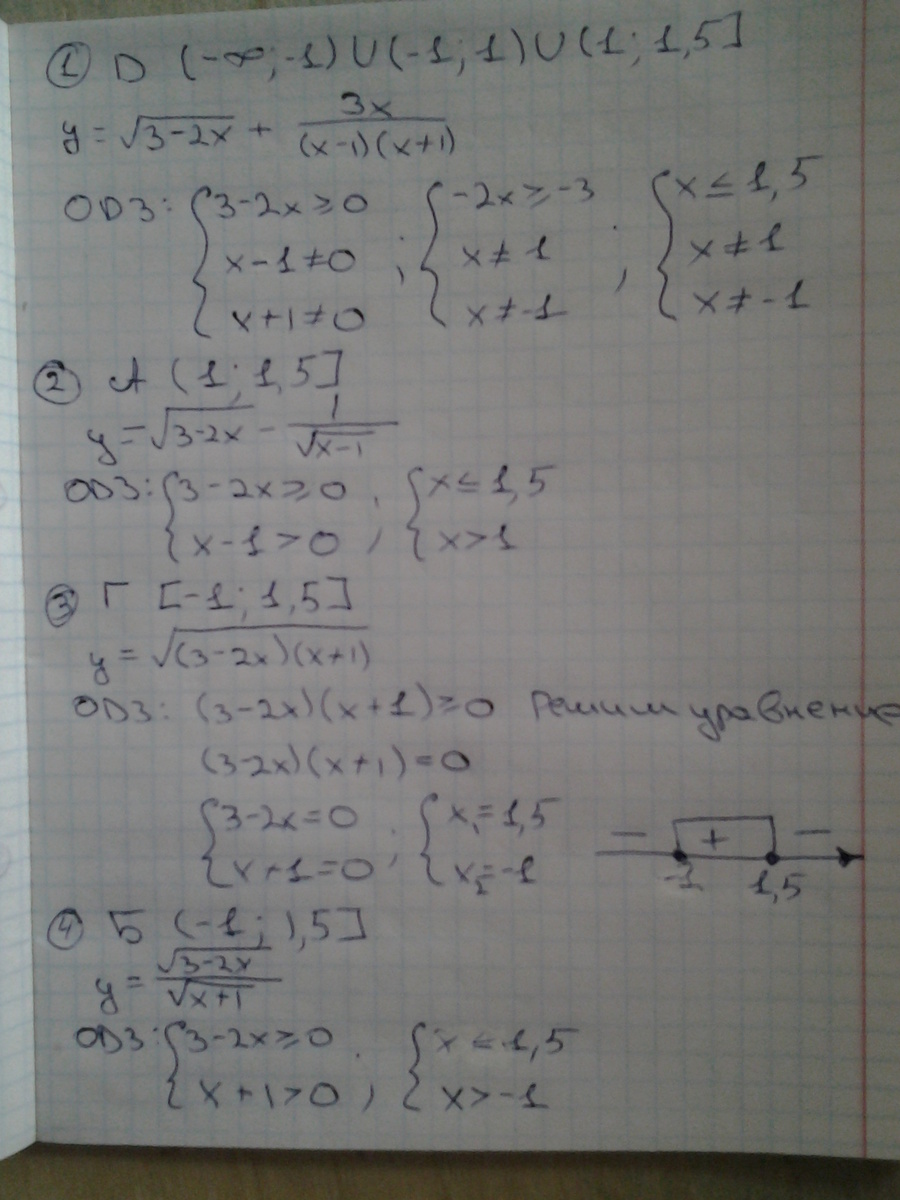 ① D (-∞; -1) ∪ (-1; 1) ∪ (1; 1,5]
y = √(3-2x) + 3x/((x-1)(x+1))
ОДЗ: { 3-2x ≥ 0 ; { -2x ≥ -3 ; { x ≤ 1,5
x-1 ≠ 0 x ≠ 1 x ≠ 1
x+1 ≠ 0 x ≠ -1 x ≠ -1
② A (1; 1,5]
y = √(3-2x) - 1/√(x-1)
ОДЗ: { 3-2x ≥ 0 ; { x ≤ 1,5
x-1 > 0 x > 1
③ Г [-1; 1,5]
y = √((3-2x)(x+1))
ОДЗ: (3-2x)(x+1) ≥ 0 Решим уравнение
(3-2x)(x+1) = 0
{ 3-2x = 0 ; { x₁ = 1,5 — + —
x+1 = 0 x₂ = -1 -1 1,5
④ Б (-1; 1,5]
y = √(3-2x)/√(x+1)
ОДЗ: { 3-2x ≥ 0 ; { x ≤ 1,5
x+1 > 0 x > -1